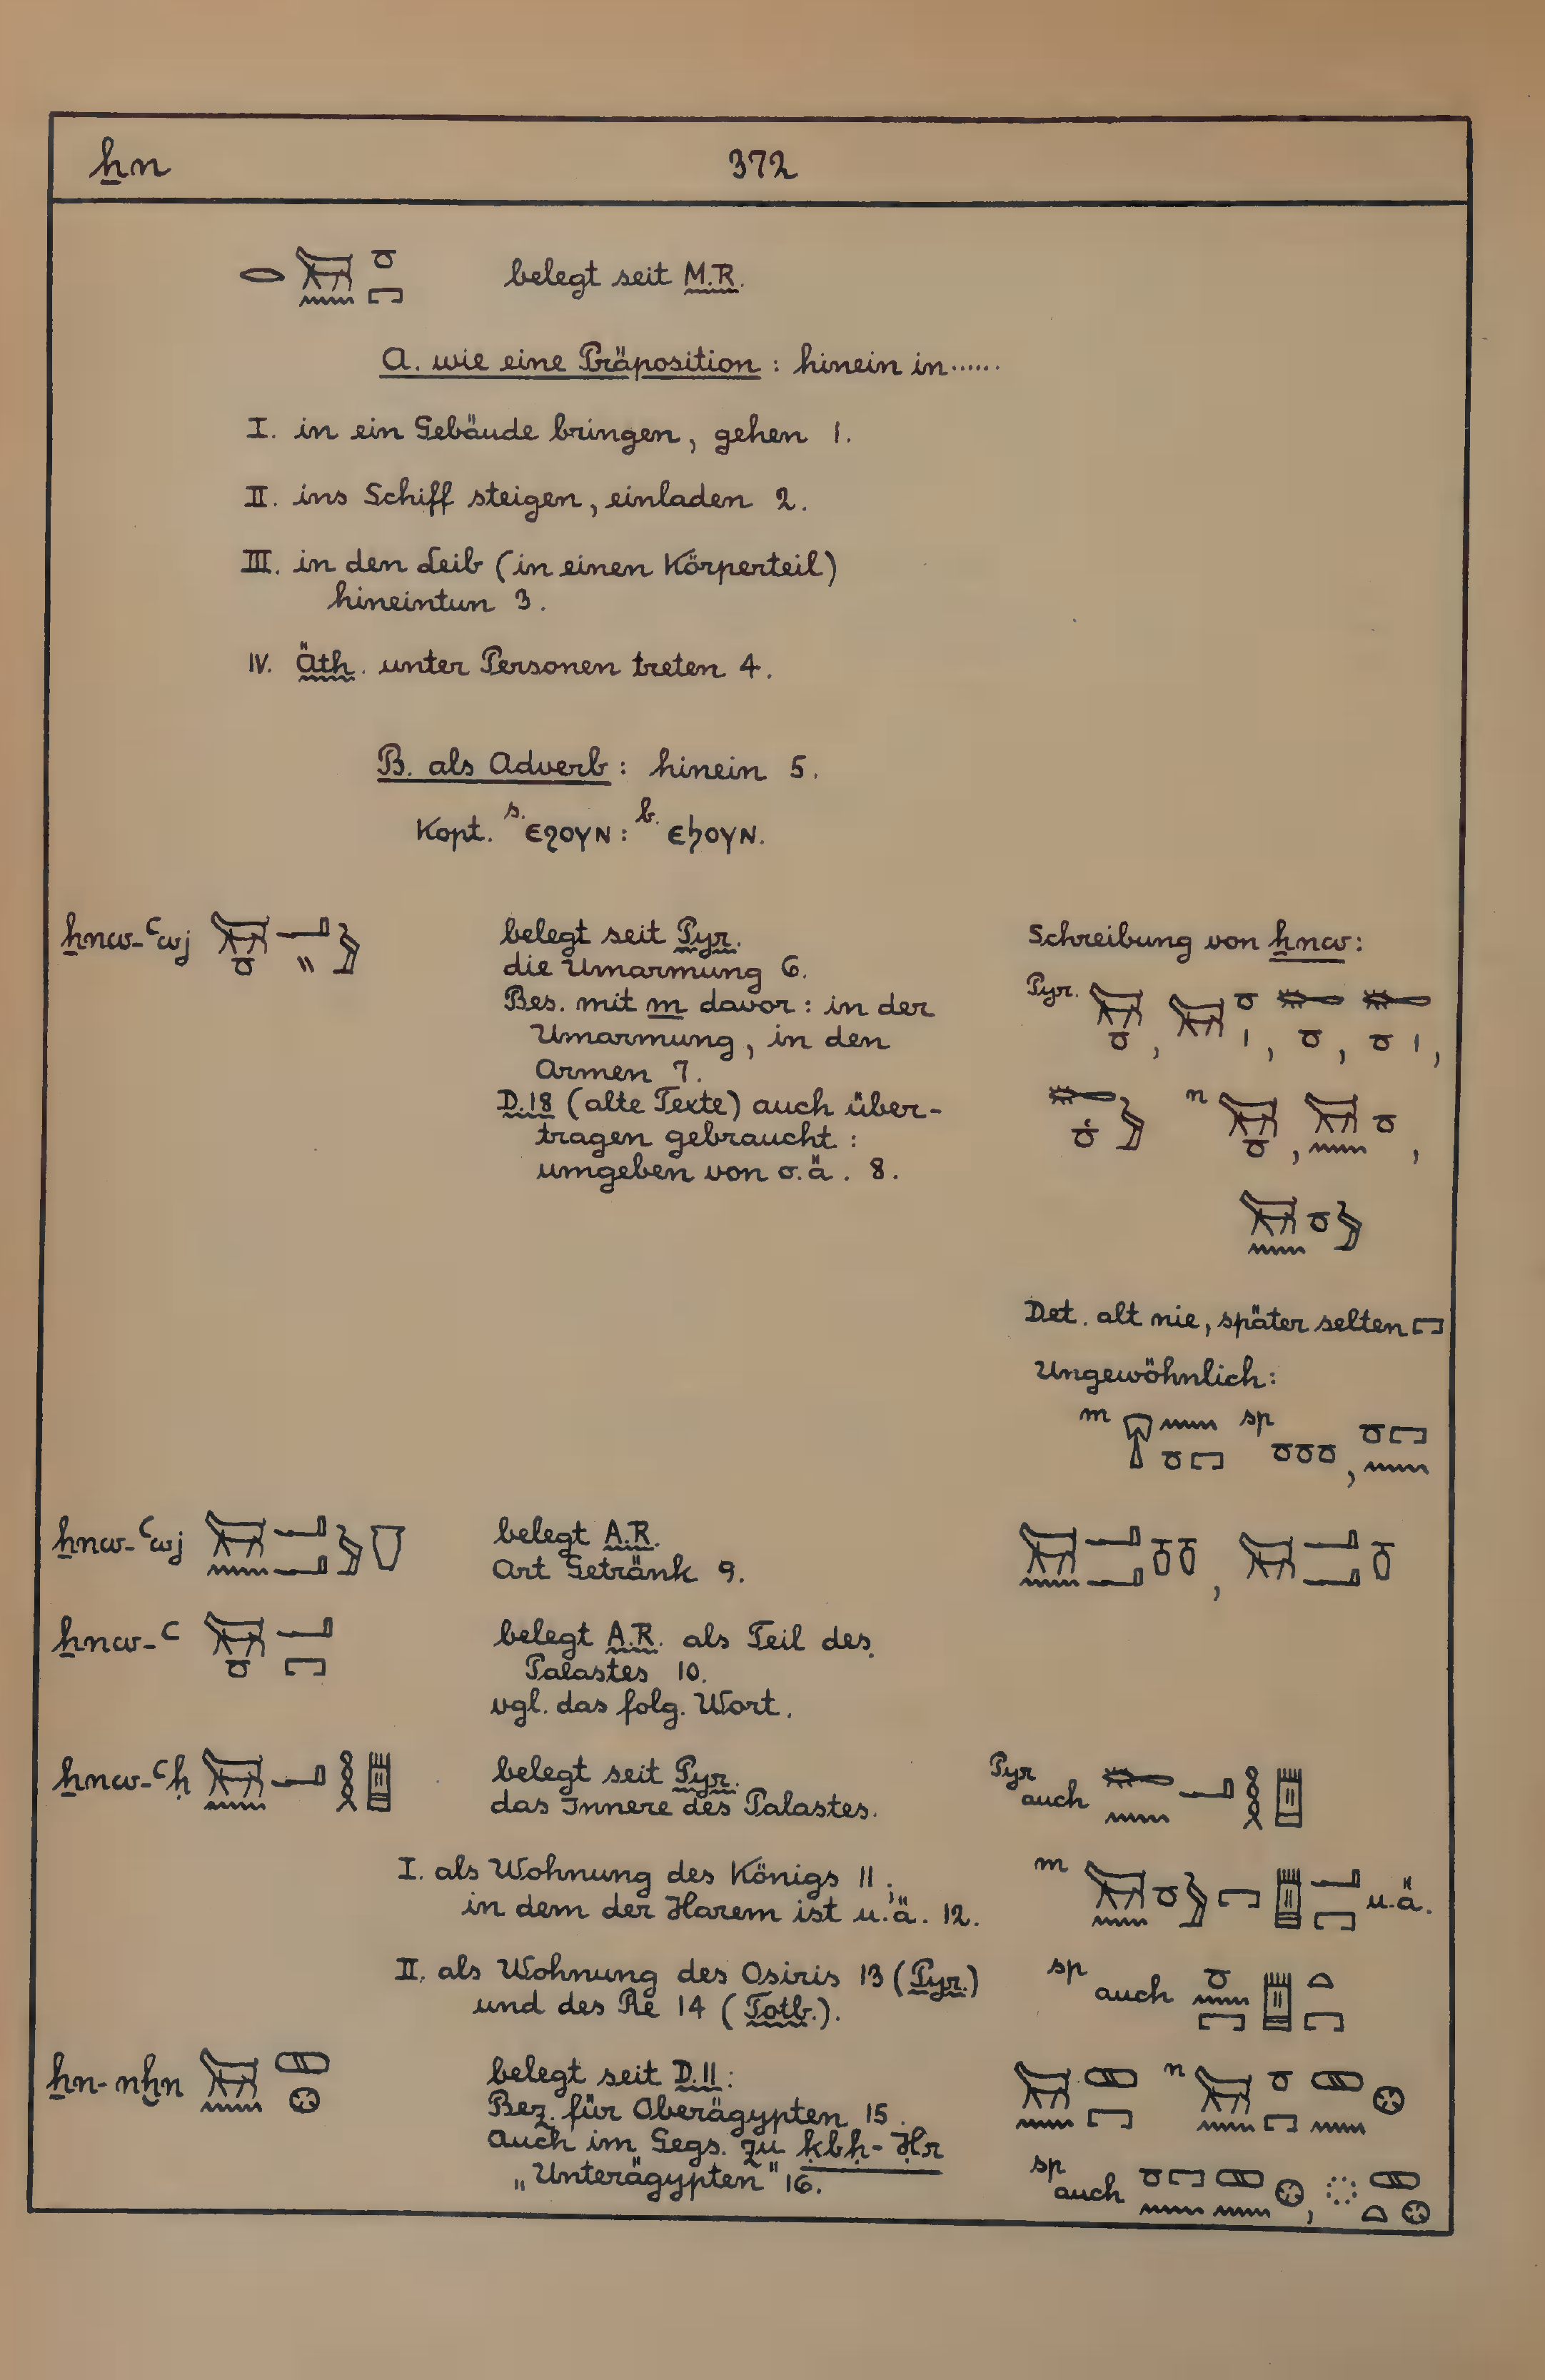 ẖn 372
belegt seit M.R.
A. wie eine Präposition : hinein in......
I. in ein Gebäude bringen, gehen 1.
II. ins Schiff steigen, einladen 2.
III. in den Leib (in einen Körperteil)
hineintun 3.
IV. Äth. unter Personen treten 4.
B. als Adverb : hinein 5.
Kopt. s. ⲉϩⲟⲩⲛ : b. ⲉϧⲟⲩⲛ.
ẖnw-ꜥwj belegt seit Pyr.
die Umarmung 6.
Bes. mit m davor : in der
Umarmung, in den
Armen 7.
D.18 (alte Texte) auch über-
tragen gebraucht :
umgeben von o.ä. 8.
Schreibung von ẖnw :
Pyr.
n
Det. alt nie, später selten
Ungewöhnlich :
m sp
ẖnw-ꜥwj belegt A.R.
Art Getränk 9.
ẖnw-ꜥ belegt A.R. als Teil des
Palastes 10.
vgl. das folg. Wort.
ẖnw-ꜥḥ belegt seit Pyr.
das Innere des Palastes.
Pyr
auch
I. als Wohnung des Königs 11.
in dem der Harem ist u.ä. 12.
m u.ä.
II. als Wohnung des Osiris 13 (Pyr.)
und des Re 14 (Totb.).
sp auch
ẖn-nḫn belegt seit D.11 :
Bez. für Oberägypten 15.
Auch im Gegs. zu ḳbḥ-Ḥr
„Unterägypten" 16.
n
sp auch